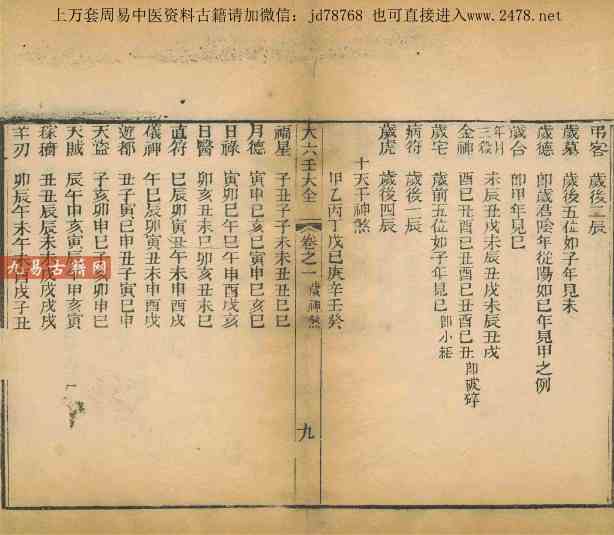 上万套周易中医资料古籍请加微信：jd78768 也可直接进入www.2478.net
弔客 歲後二辰
歲墓 歲後五位如子年見未
歲德 卽歲君陰年從陽如巳年見甲之例
歲合 卽甲年見巳
年月三殺 未辰丑戌未辰丑戌未辰丑戌
金神 酉巳丑酉巳丑酉巳丑酉巳丑 卽破碎
歲宅 歲前五位如子年見巳 卽小耗
病符 歲後一辰
歲虎 歲後四辰
十天干神煞
甲乙丙丁戊己庚辛壬癸
福星 子丑子子未未丑丑巳巳
月德 寅申巳亥寅申巳亥寅巳
日祿 寅卯巳午巳午申酉亥子
日醫 卯亥丑未巳卯亥丑未巳
直符 巳辰卯寅丑午未申酉戌
儀神 午巳辰卯寅丑未申酉戌
遊都 丑子寅巳申丑子寅巳申
天盜
天賊
羊刃
大六壬大全 卷之一 歲神煞 九
九易古籍网